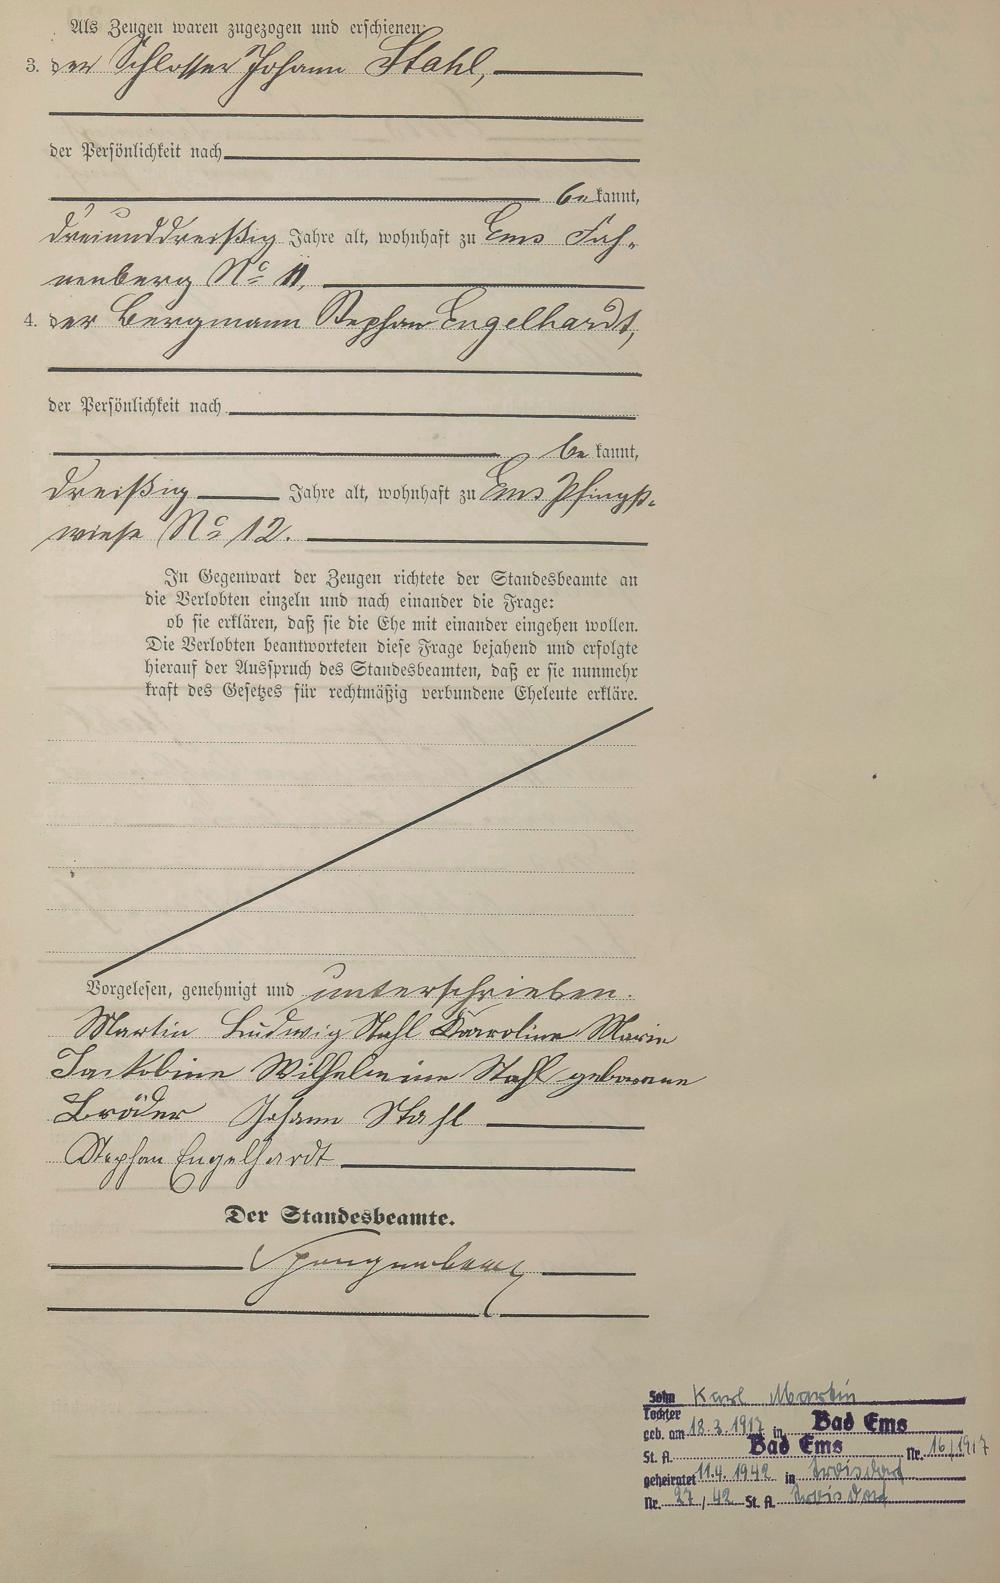 Als Zeugen waren zugezogen und erschienen:
3. der Schlosser Johann Stahl,
der Persönlichkeit nach
bekannt,
dreiunddreißig Jahre alt, wohnhaft zu Ems Fah-
nenberg No 11,
4. der Bergmann Stephan Engelhardt,
der Persönlichkeit nach
bekannt,
dreißig Jahre alt, wohnhaft zu Ems Pfingst-
wiese No 12.
In Gegenwart der Zeugen richtete der Standesbeamte an
die Verlobten einzeln und nach einander die Frage:
ob sie erklären, daß sie die Ehe mit einander eingehen wollen.
Die Verlobten beantworteten diese Frage bejahend und erfolgte
hierauf der Ausspruch des Standesbeamten, daß er sie nunmehr
kraft des Gesetzes für rechtmäßig verbundene Eheleute erkläre.
Vorgelesen, genehmigt und unterschrieben.
Martin Ludwig Stahl Karoline Marie
Jackobine Wilhelmine Stahl geborene
Bröder Johann Stahl
Stephan Engelhardt
Der Standesbeamte.
Sohn Karl Martin
Tochter
geb. am 18.3.1917 in Bad Ems
St. A. Bad Ems Nr. 16/1917
geheiratet 11.4.1942 in Troisdorf
Nr. 27/42 St. A. Troisdorf